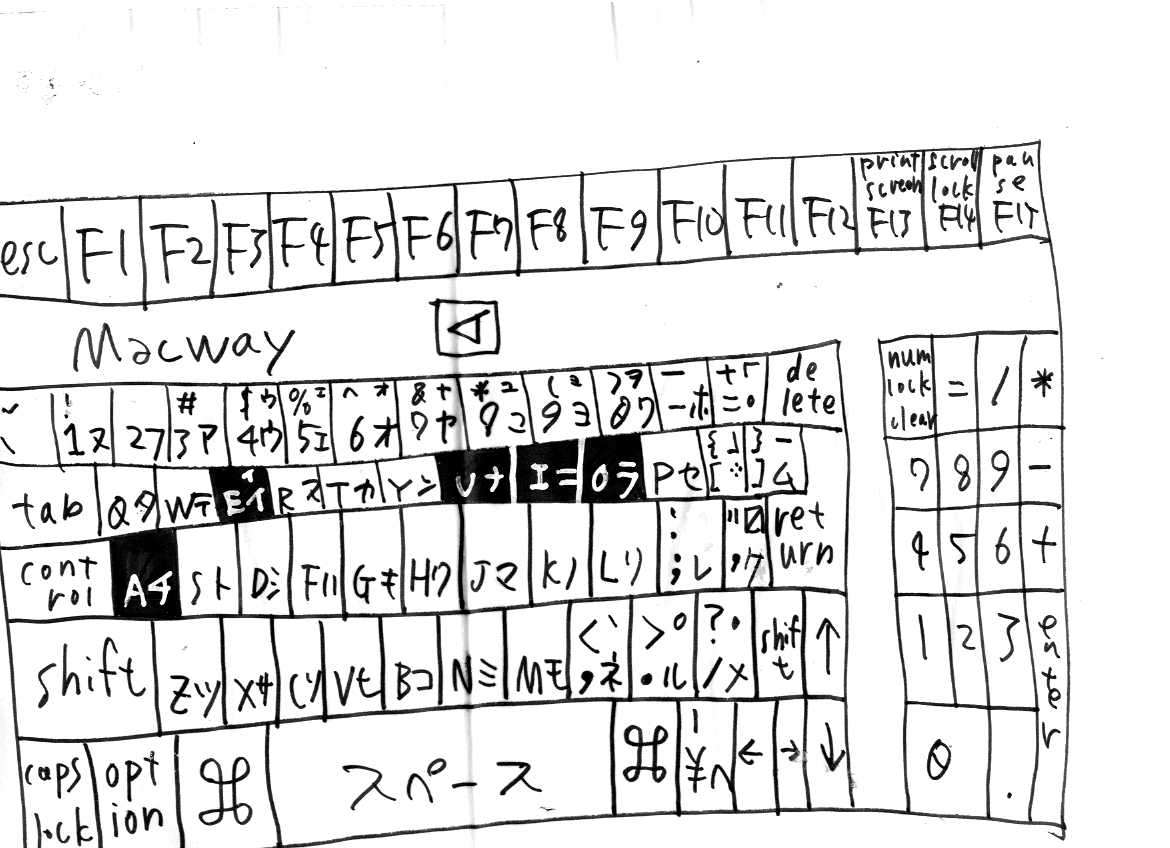 esc F1 F2 F3 F4 F5 F6 F7 F8 F9 F10 F11 F12 print screen F13 scroll lock F14 pause F15
Macway
! # $ ゥ % ェ ^ ォ & ャ * ュ ( ョ ) ヲ ー + 「 delete
1ヌ 2フ 3ア 4ウ 5エ 6オ 7ヤ 8ユ 9ヨ 0ワ -ホ =。
num lock clear = / *
tab Qタ Wテ Eイ Rス Tカ Yン Uナ Iニ Oラ Pセ { 」 [ ゛ } ー ] ム
7 8 9 -
control Aチ Sト Dシ Fハ Gキ Hク Jマ Kノ Lリ : ;レ " ロ ,ケ return
4 5 6 +
shift Zツ Xサ Cソ Vヒ Bコ Nミ Mモ < 、 ,ネ > 。 .ル ? ・ /メ shift ↑
1 2 3 enter
caps lock option ⌘ スペース ⌘ | ¥ヘ ← → ↓
0 .